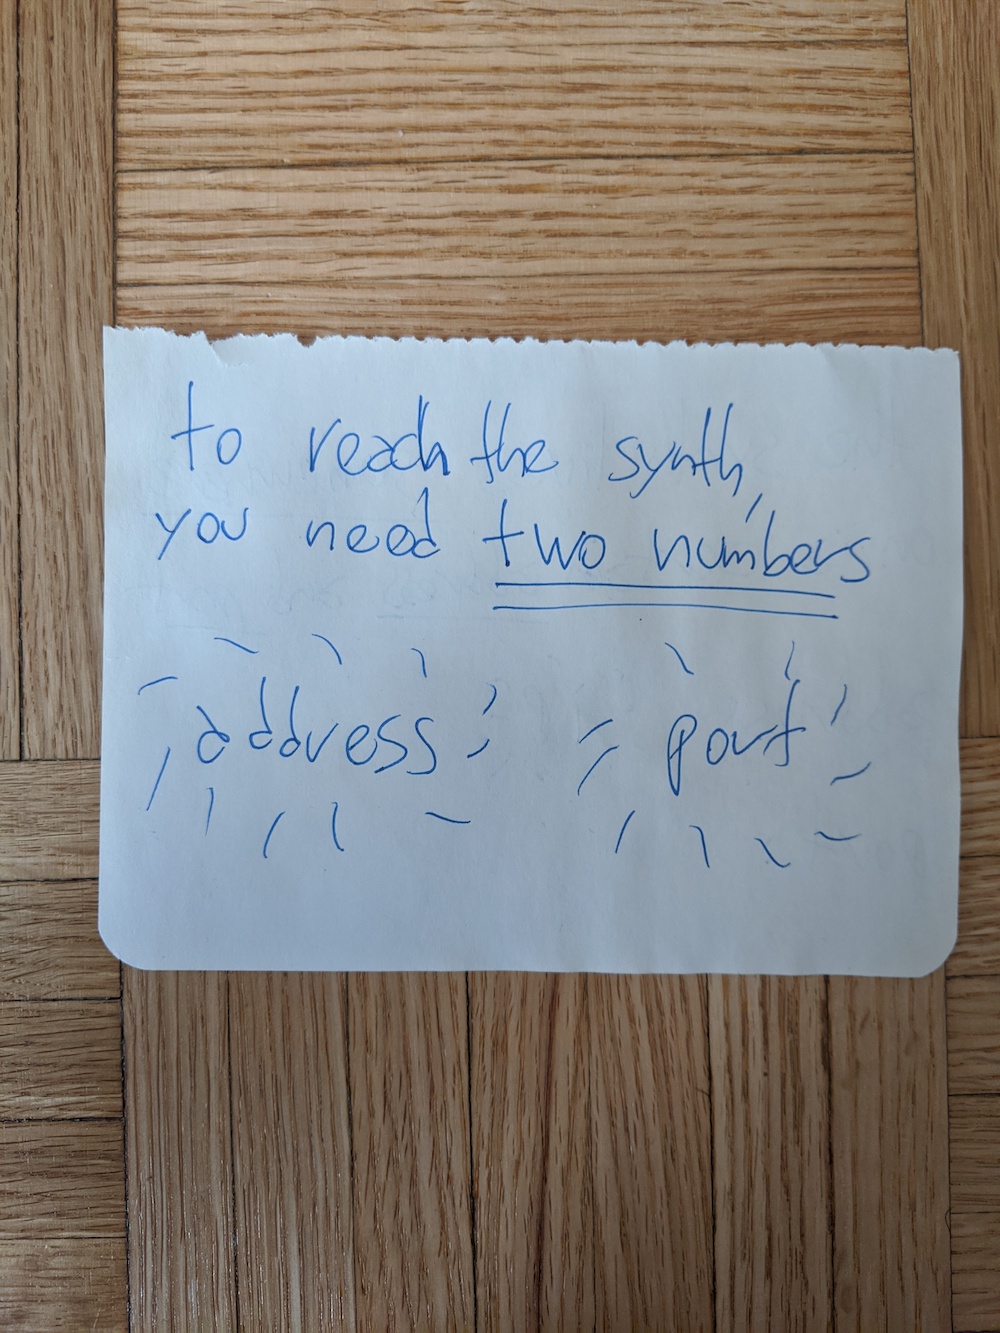 to reach the synth,
you need two numbers
address port